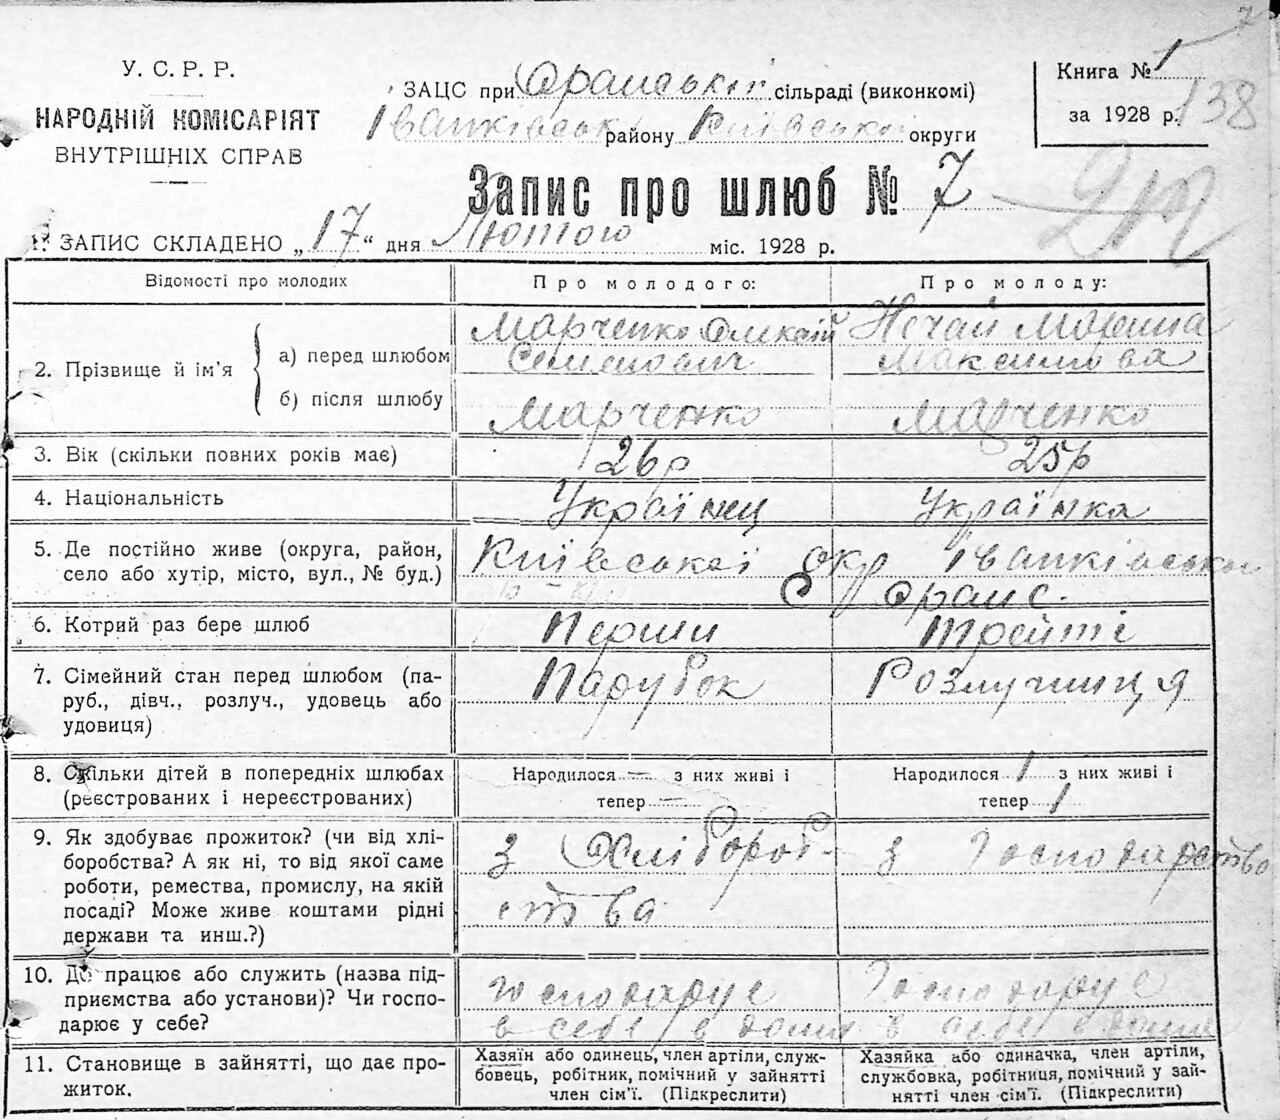 7
У. С. Р. Р.
НАРОДНІЙ КОМІСАРІЯТ
ВНУТРІШНІХ СПРАВ
ЗАЦС при Оранській сільраді (виконкомі)
Іванківськ району Київської округи
Книга № 1
за 1928 р.
138
Запис про шлюб № 7
1. ЗАПИС СКЛАДЕНО „17“ дня Лютого міс. 1928 р.
Відомості про молодих
Про молодого:
Про молоду:
2. Прізвище й ім’я
а) перед шлюбом
Марченко Олексій
Семенович
Нечай Марина
Максимова
б) після шлюбу
Марченко
Марченко
3. Вік (скільки повних років має)
26р
25р
4. Національність
Українец
Українка
5. Де постійно живе (округа, район,
село або хутір, місто, вул., № буд.)
Київської окр Іванківська
С Оранс.
6. Котрий раз бере шлюб
Перши
Трейті
7. Сімейний стан перед шлюбом (па-
руб., дівч., розлуч., удовець або
удовиця)
Парубок
Розлучниця
8. Скільки дітей в попередніх шлюбах
(реєстрованих і нереєстрованих)
Народилося — з них живі і
тепер —
Народилося 1 з них живі і
тепер 1
9. Як здобуває прожиток? (чи від хлі-
боробства? А як ні, то від якої саме
роботи, ремества, промислу, на якій
посаді? Може живе коштами рідні
держави та инш.?)
З Хлібороб-
ства
З Господарство
10. Де працює або служить (назва під-
приємства або установи)? Чи госпо-
дарює у себе?
господарує
в себе в доми
Господарує
в себе в доми
11. Становище в зайнятті, що дає про-
житок.
Хазяїн або одинець, член артіли, служ-
бовець, робітник, помічний у зайнятті
член сім’ї. (Підкреслити)
Хазяйка або одиначка, член артіли,
службовка, робітниця, помічний у зай-
нятті член сім’ї. (Підкреслити)